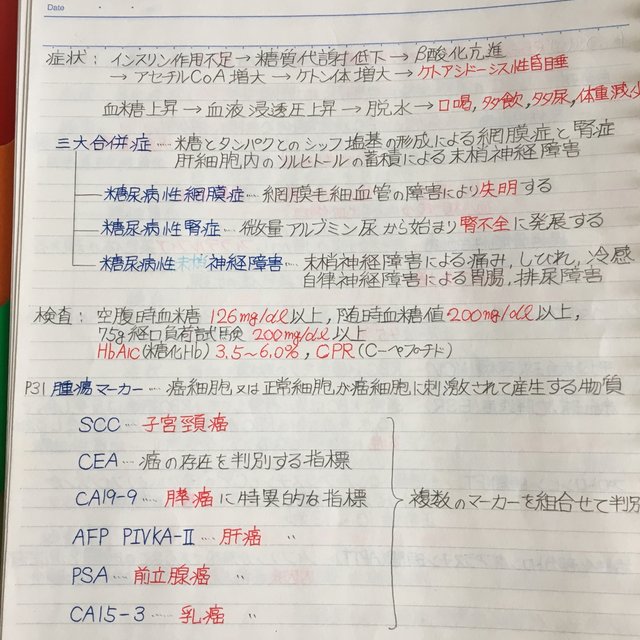 Date
症状: インスリン作用不足→糖質代謝低下→β酸化亢進
→アセチルCoA増大→ケトン体増大→ケトアシドーシス性昏睡
血糖上昇→血液浸透圧上昇→脱水→口喝,多飲,多尿,体重減少
三大合併症…糖とタンパクとのシッフ塩基の形成による網膜症と腎症
肝細胞内のソルビトールの蓄積による末梢神経障害
糖尿病性網膜症…網膜毛細血管の障害により失明する
糖尿病性腎症…微数量アルブミン尿から始まり腎不全に発展する
糖尿病性末梢神経障害…末梢神経障害による痛み,しびれ,冷感
自律神経障害による胃腸,排尿障害
検査: 空腹時血糖 126mg/dl以上,随時血糖値200mg/dl以上,
75g経口負荷試験 200mg/dl以上
HbA1c(糖化Hb) 3.5~6.0%, CPR(C-ペプチド)
P31 腫瘍マーカー…癌細胞又は正常細胞が癌細胞に刺激されて産生する物質
SCC…子宮頸癌
CEA…癌の存在を判別する指標
CA19-9…膵癌に特異的な指標
複数のマーカーを組合せて判別
AFP PIVKA-II…肝癌 〃
PSA…前立腺癌 〃
CA15-3…乳癌 〃